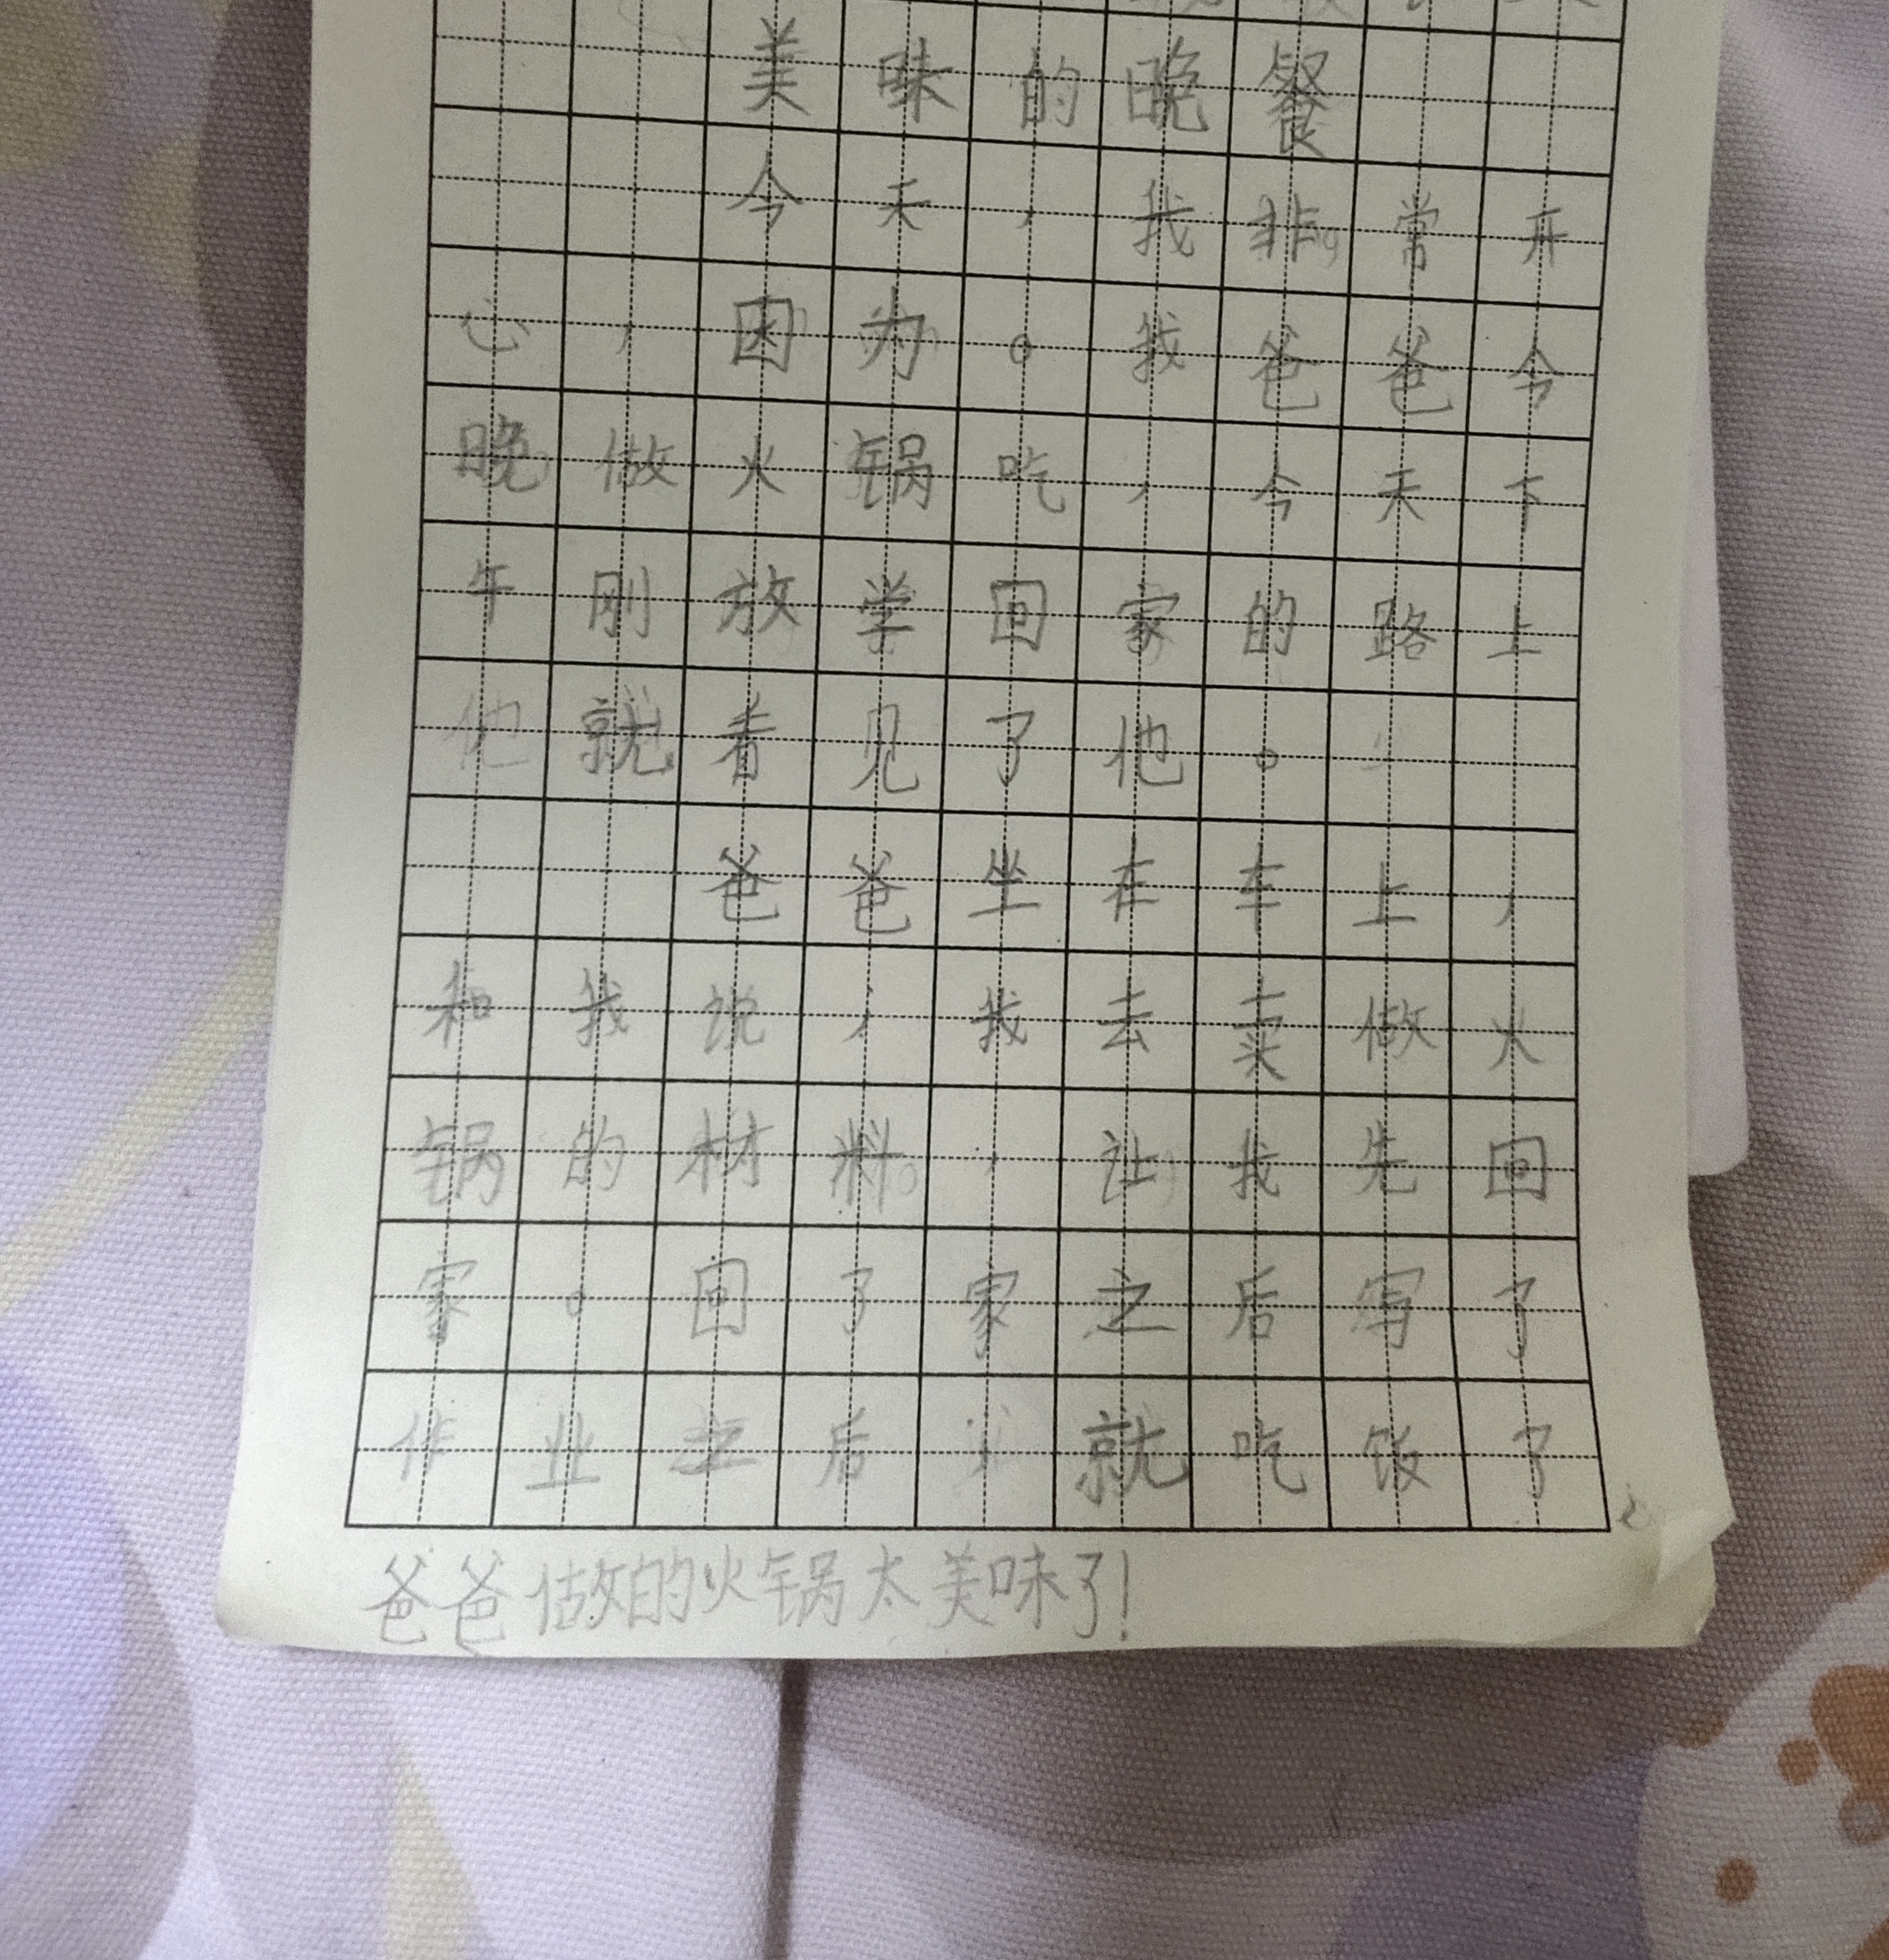 美味的晚餐
今天，我非常开
心，因为。我爸爸今
晚做火锅吃，今天下
午刚放学回家的路上
他就看见了他。
爸爸坐在车上，
和我说，我去卖做火
锅的材料，让我先回
家。回了家之后写了
作业之后，就吃饭了
爸爸做的火锅太美味了！